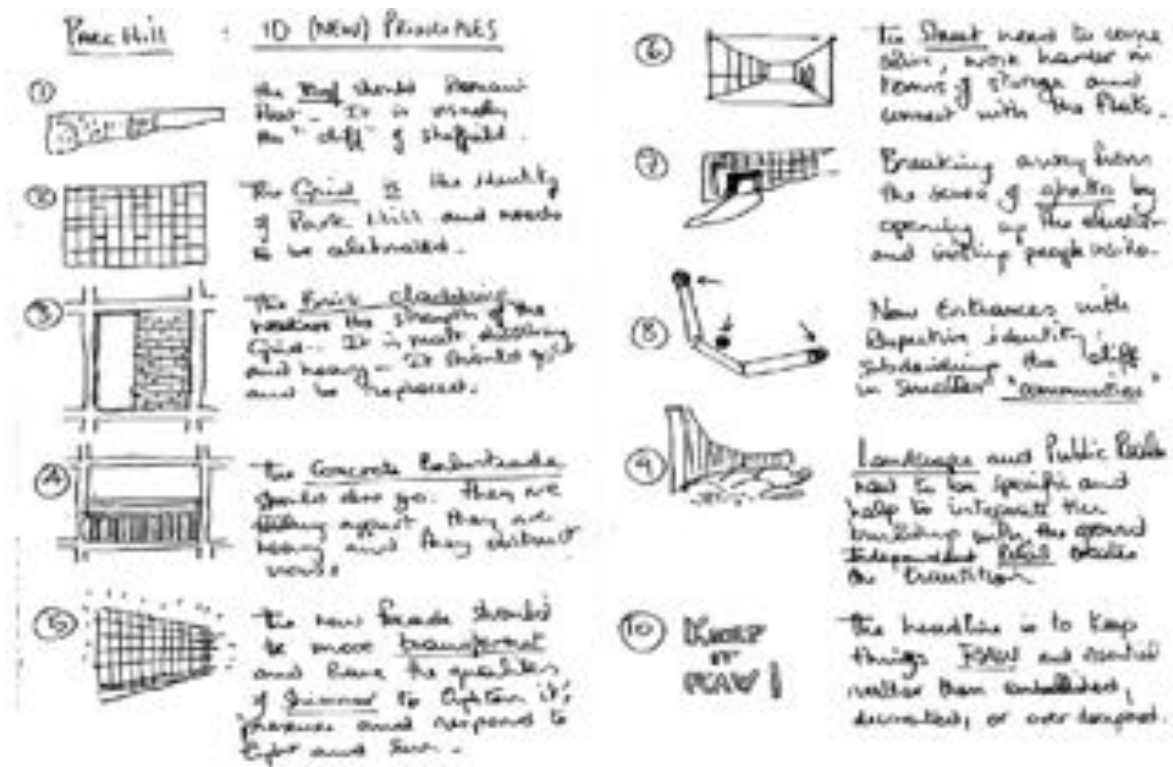 Park Hill : 10 (NEW) PRINCIPLES
1
the Roof should Remain
flat. It is usually
the "cliff" of Sheffield.
2
The Grid is the identity
of Park Hill and needs
to be celebrated.
3
The Brick cladding
the strength of the
Grid. It is
and heavy. It should go
and be replaced.
4
The Concrete Balustrade
should also go. They are
against they are
heavy and they obstruct
views
5
the new facade should
be more transparent
and have the qualities
of Shimmer to lighten it's
presence and respond to
light and Sun.
6
The Street need to come
alive, work harder in
terms of storage and
connect with the flats.
7
Breaking away from
the sense of ghetto by
opening up the elevation
and inviting people inside.
8
New Entrances with
Respective identity
Subdividing the cliff
in smaller "communities"
9
Landscape and Public Realm
need to be specific and
help to integrate the
building with the ground
Independent
the transition
10
KEEP
IT
RAW !
the headline is to keep
things RAW and essential
rather than embellished,
decorated, or over designed.